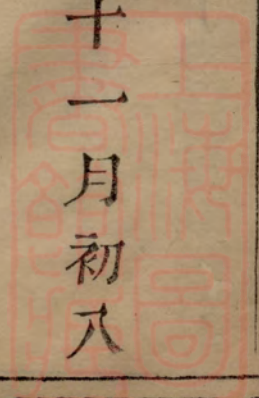 十一月初八